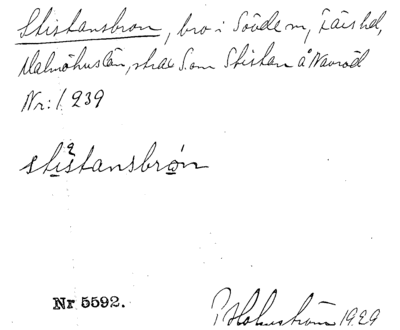 Stistansbron, bro i Södde sn, Färs hd,
Malmöhus län, strax S om Stistan å Navröd
Nr: 1 239
stistansbrøn
Nr 5592.
P. Holmström 1929